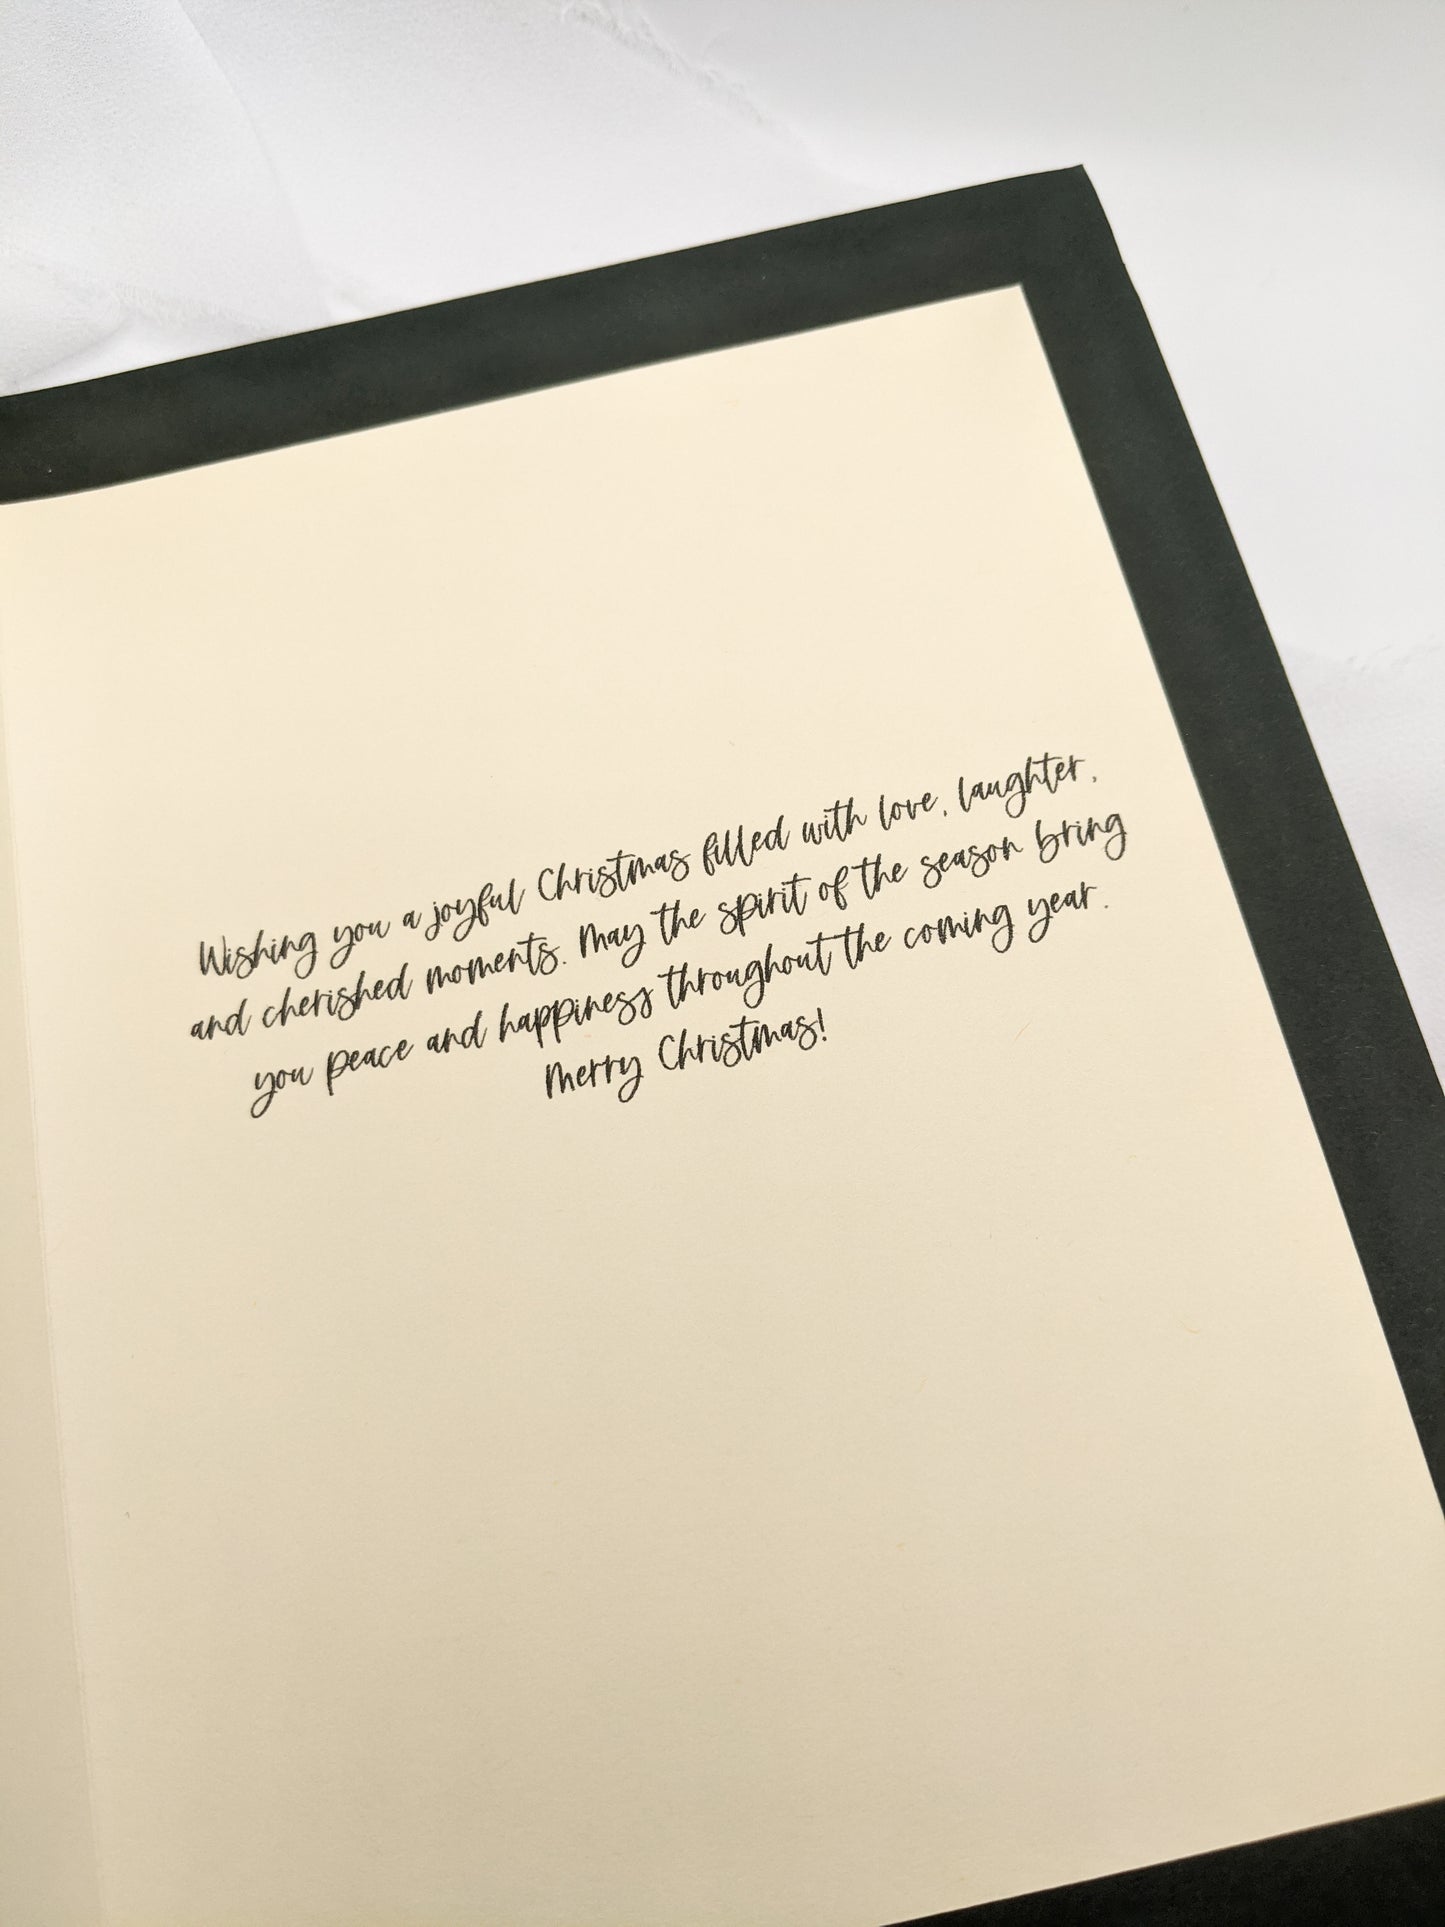 Wishing you a joyful Christmas filled with love, laughter,
and cherished moments. May the spirit of the season bring
you peace and happiness throughout the coming year.
Merry Christmas!